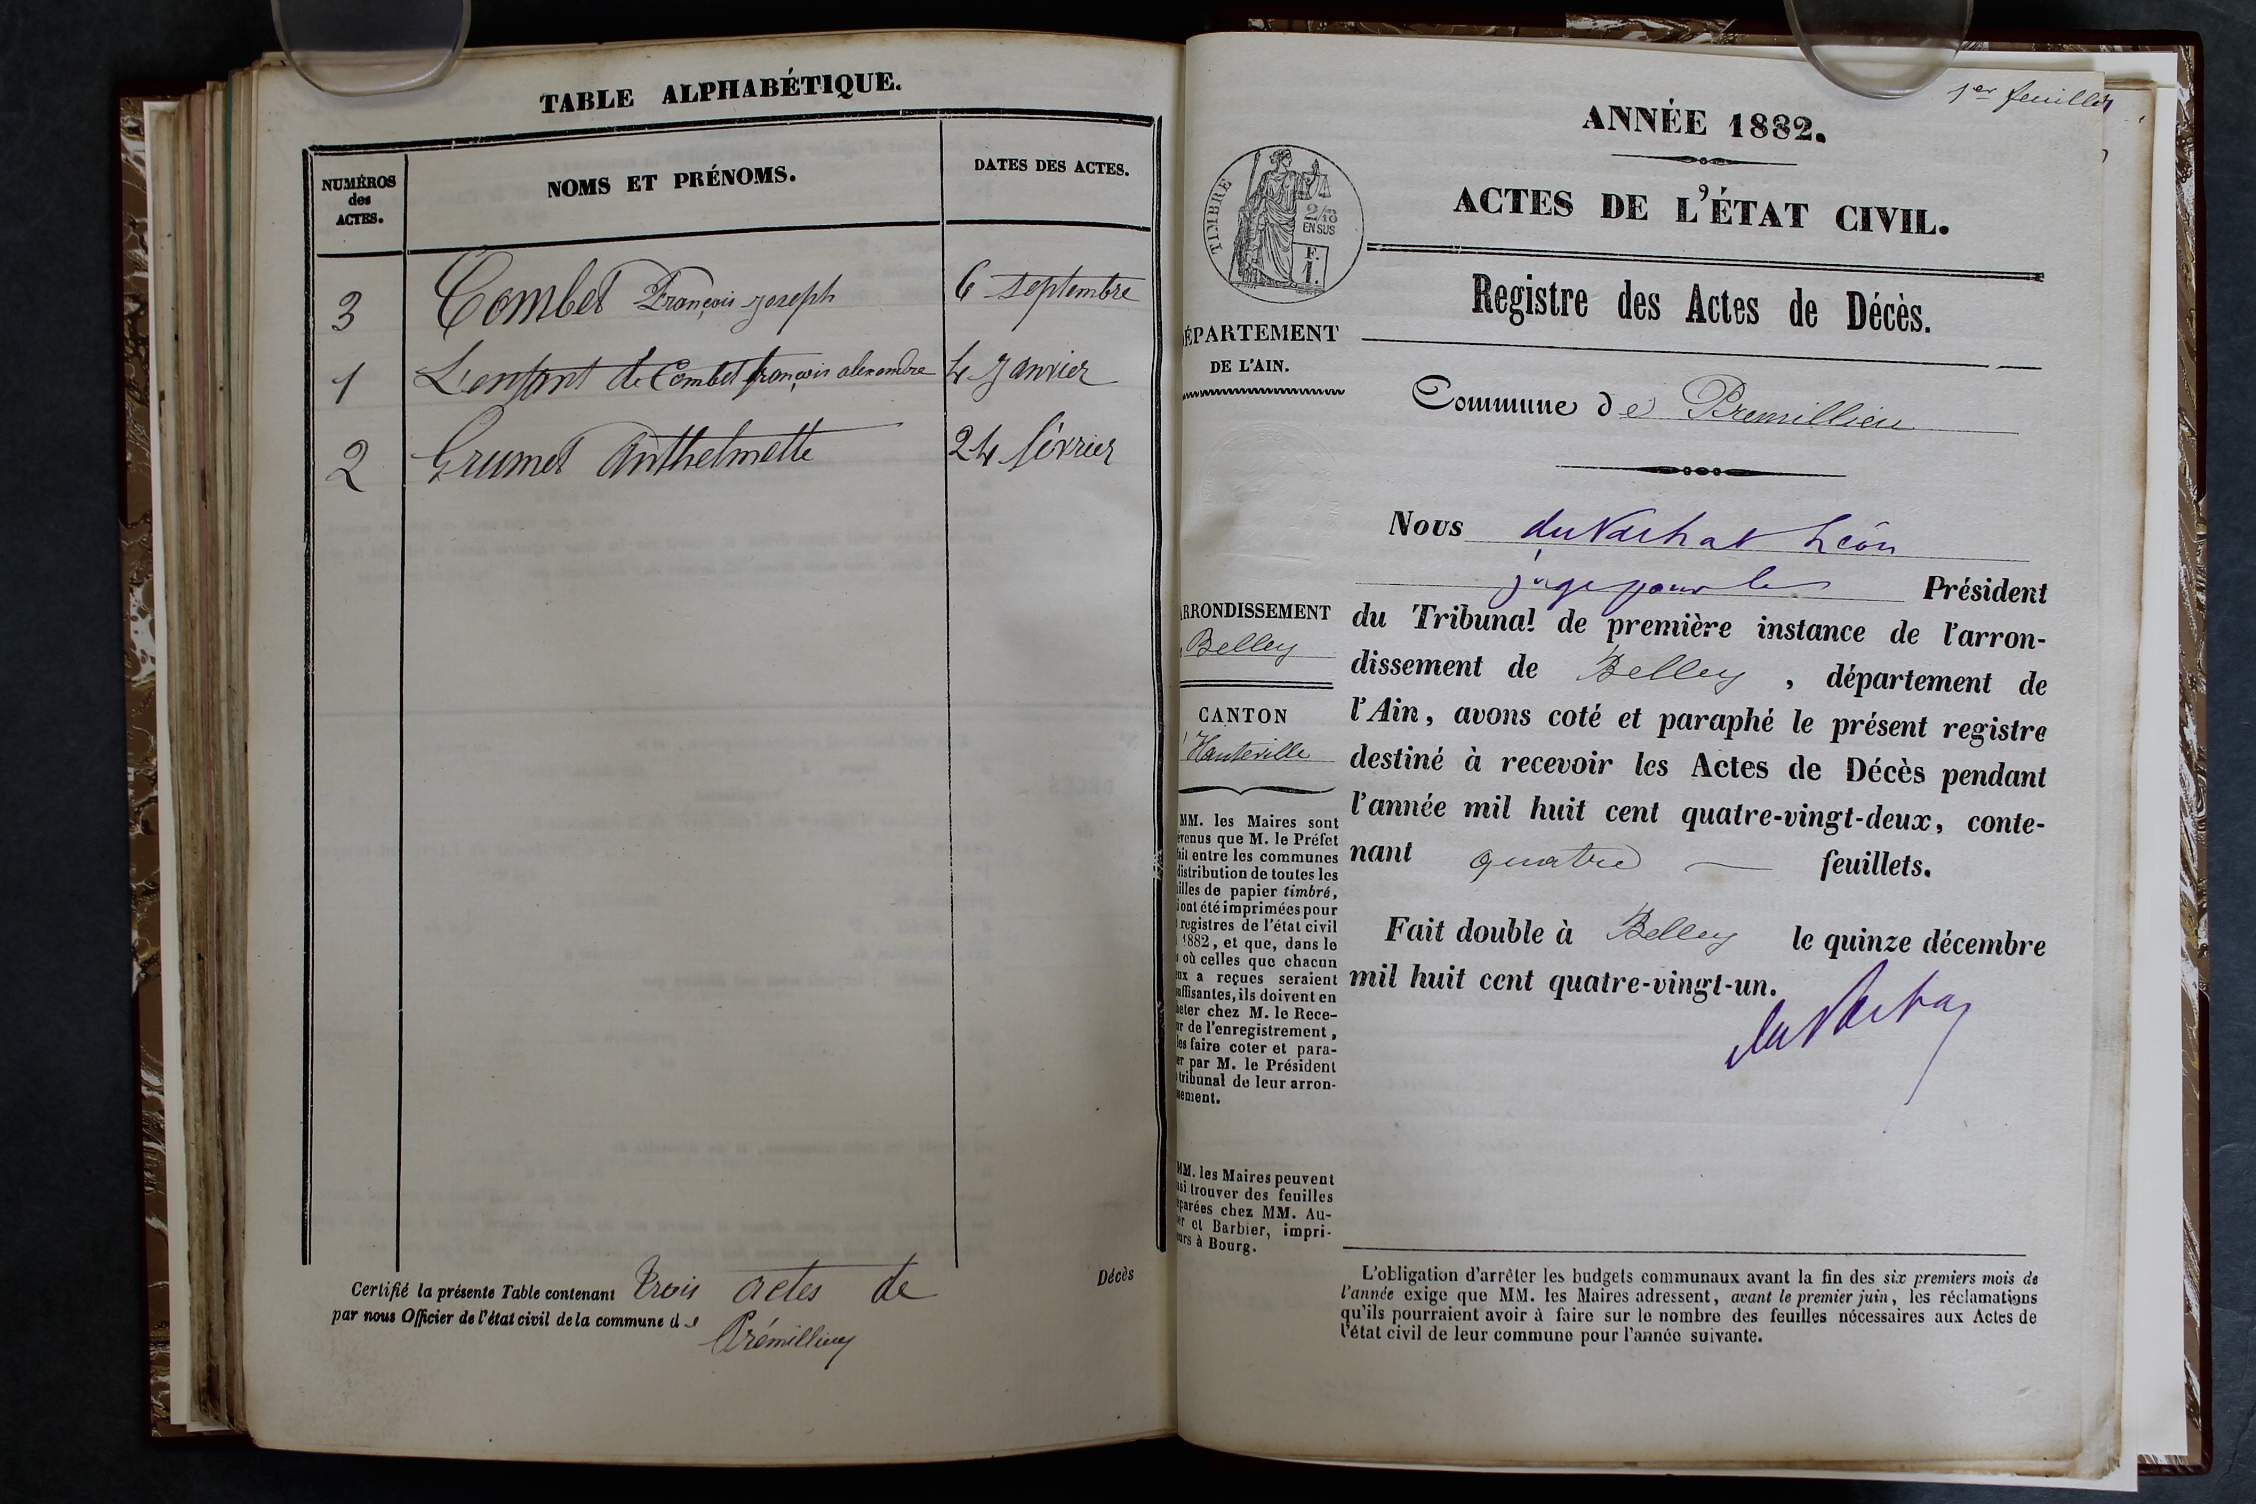 TABLE ALPHABÉTIQUE.
NUMÉROS
des
ACTES.
NOMS ET PRÉNOMS.
DATES DES ACTES.
3 Combet François joseph 6 septembre
1 L'enfant de Combet françois alexandre 4 janvier
2 Grumet Anthelmette 24 février
Certifié la présente Table contenant trois actes de Décès
par nous Officier de l'état civil de la commune de
Prémillieu
1er feuillet
ANNÉE 1882.
ACTES DE L'ÉTAT CIVIL.
TIMBRE
2/10
EN SUS
F.
1.
Registre des Actes de Décès.
DÉPARTEMENT
DE L'AIN.
Commune de Premillieu
Nous du Vachat Léon
juge pour le Président
du Tribunal de première instance de l'arron-
dissement de Belley, département de
l'Ain, avons coté et paraphé le présent registre
destiné à recevoir les Actes de Décès pendant
l'année mil huit cent quatre-vingt-deux, conte-
nant quatre — feuillets.
Fait double à Belley le quinze décembre
mil huit cent quatre-vingt-un.
ARRONDISSEMENT
Belley
CANTON
d'Hauteville
MM. les Maires sont
évenus que M. le Préfet
ait entre les communes
distribution de toutes les
illes de papier timbré,
i ont été imprimées pour
registres de l'état civil
1882, et que, dans le
où celles que chacun
eux a reçues seraient
uffisantes, ils doivent en
heter chez M. le Rece-
ur de l'enregistrement,
les faire coter et para-
er par M. le Président
tribunal de leur arron-
sement.
MM. les Maires peuvent
ssi trouver des feuilles
éparées chez MM. Au-
er et Barbier, impri-
eurs à Bourg.
L'obligation d'arrêter les budgets communaux avant la fin des six premiers mois de
l'année exige que MM. les Maires adressent, avant le premier juin, les réclamations
qu'ils pourraient avoir à faire sur le nombre des feuilles nécessaires aux Actes de
l'état civil de leur commune pour l'année suivante.